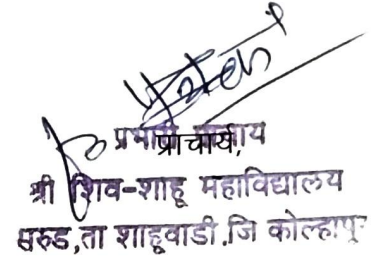 प्रभारी
प्राचार्य,
श्री शिव-शाहू महाविद्यालय
सरुड,ता शाहूवाडी.जि कोल्हापूर